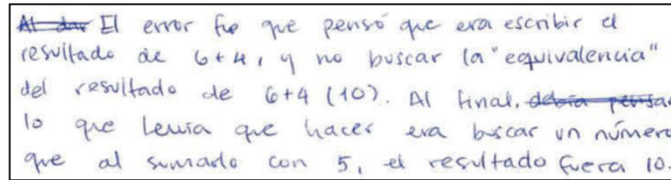 Al dar El error fue que pensó que era escribir el
resultado de 6+4, y no buscar la "equivalencia"
del resultado de 6+4 (10). Al final, debía pensar
lo que tenía que hacer era buscar un número
que al sumarlo con 5, el resultado fuera 10.